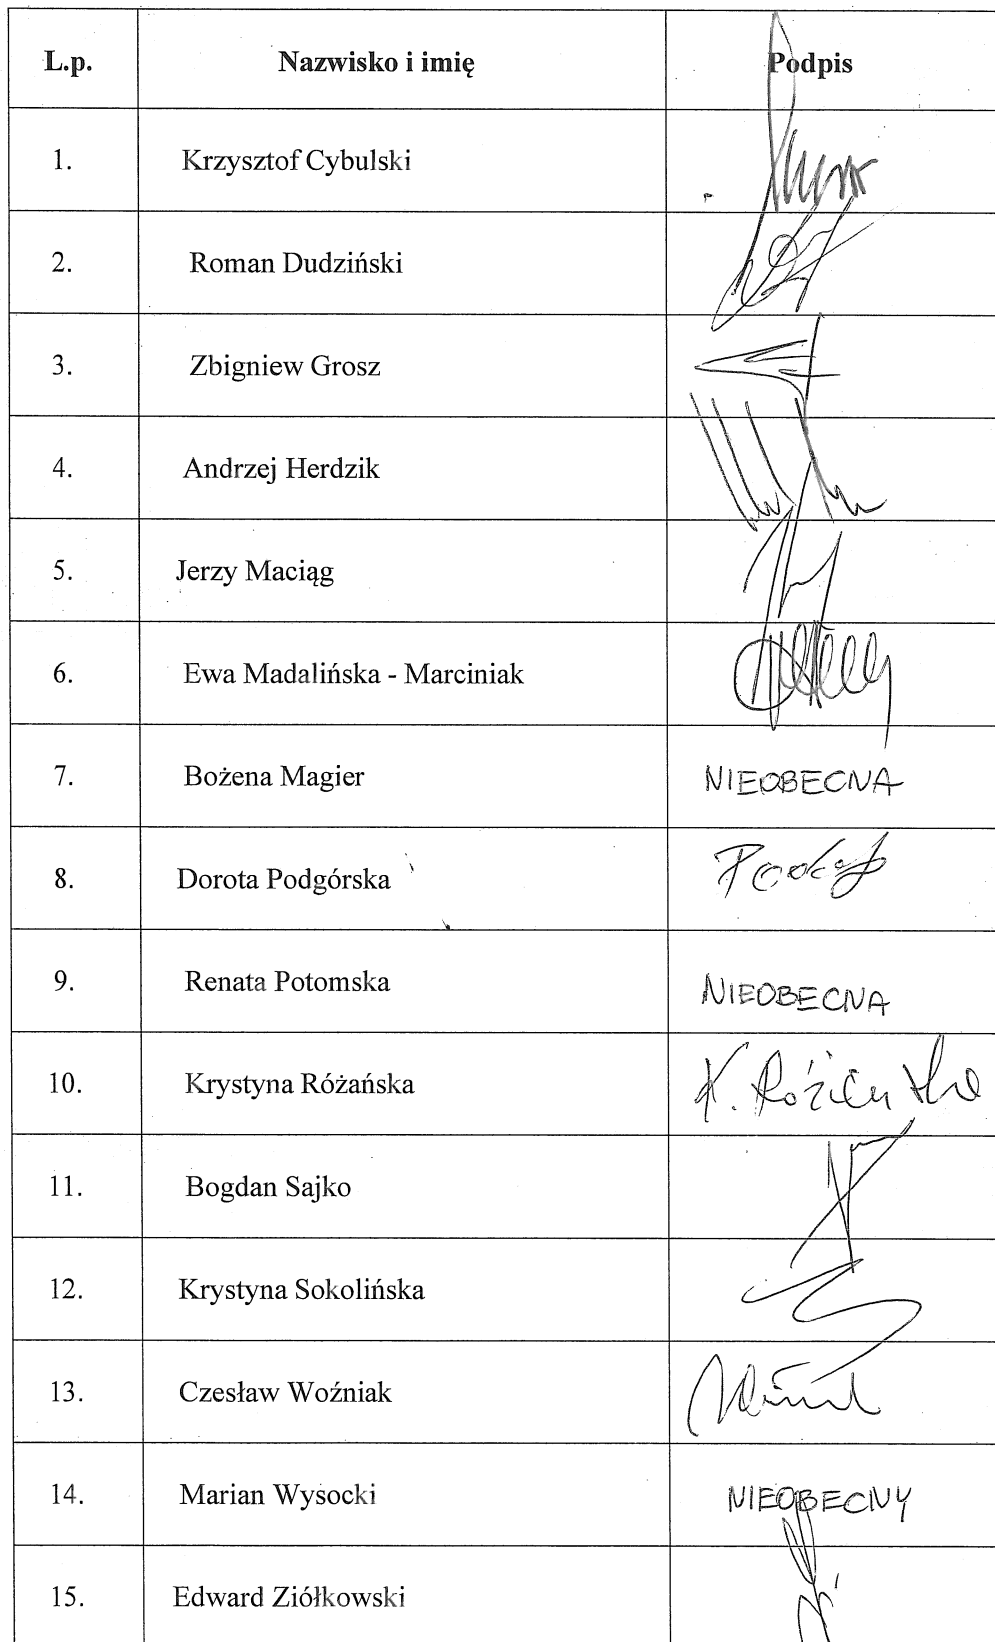 L.p. Nazwisko i imię Podpis
1. Krzysztof Cybulski
2. Roman Dudziński
3. Zbigniew Grosz
4. Andrzej Herdzik
5. Jerzy Maciąg
6. Ewa Madalińska - Marciniak
7. Bożena Magier NIEOBECNA
8. Dorota Podgórska
9. Renata Potomska NIEOBECNA
10. Krystyna Różańska K. Różańska
11. Bogdan Sajko
12. Krystyna Sokolińska
13. Czesław Woźniak
14. Marian Wysocki NIEOBECNY
15. Edward Ziółkowski